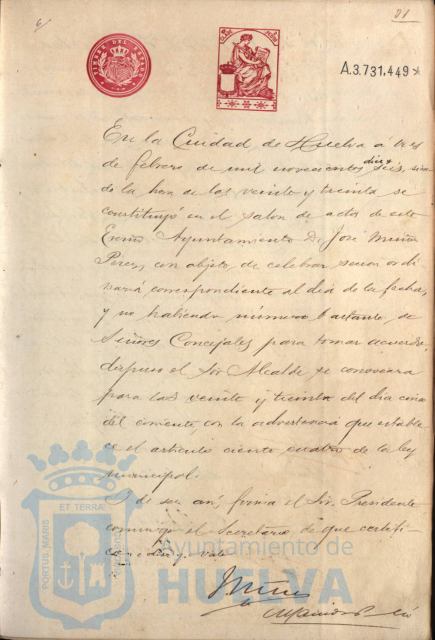 6
21
TIMBRE DEL ESTADO
A.3.731.449
En la Ciudad de Huelva á tres
de febrero de mil novecientos diez y seis, siendo
de la hora de las veinte y treinta se
constituyó en el salon de actos de este
Excmo Ayuntamiento D. José Muñoz
Perez, con objeto de celebrar sesion ordi
naria correspondiente al dia de la fecha,
y no habiendo número bastante de
Señores Concejales para tomar acuerdo,
dispuso el Sor Alcalde se convocara
para las veinte y treinta del dia cinco
del corriente, con la advertencia que estable
ce el articulo ciento cuatro de la ley
municipal.
Y de ser asi, firma el Sor. Presidente
conmigo el Secretario de que certifi
co
J. Muñoz
PORTUS MARIS
ET TERRÆ
Ayuntamiento de
HUELVA